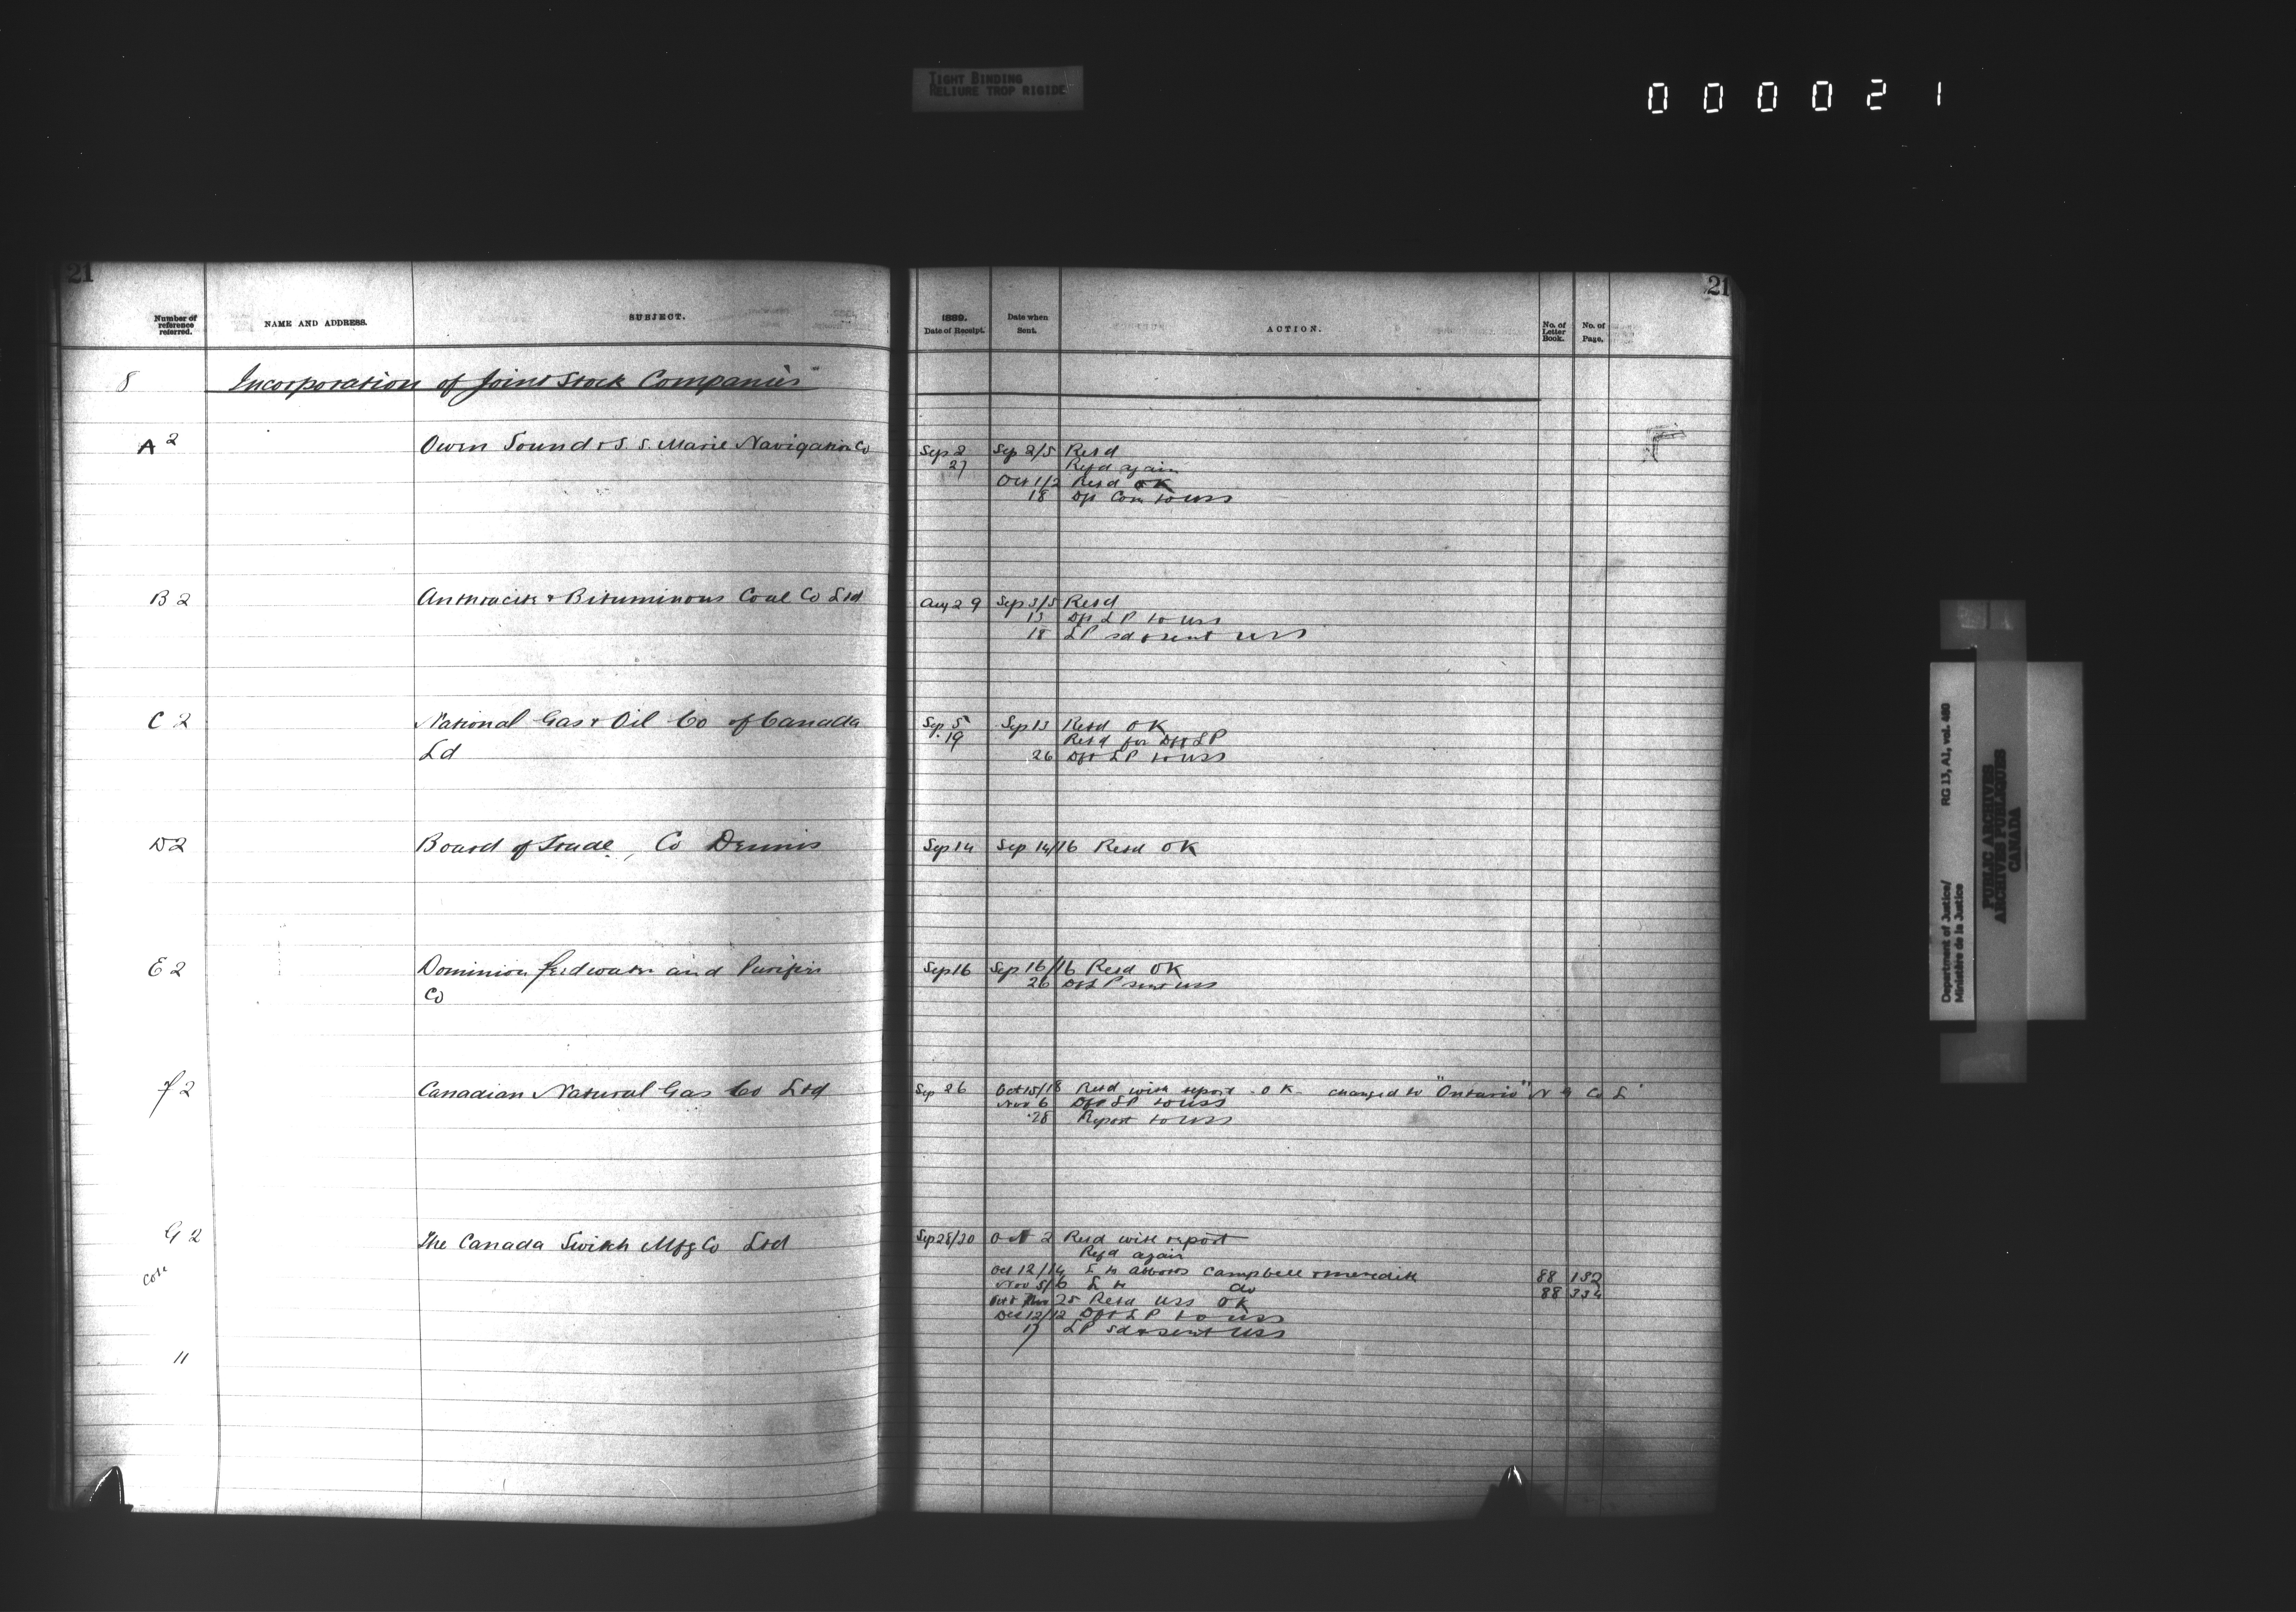 TIGHT BINDING
RELIURE TROP RIGIDE
000021
21
Number of reference referred.
NAME AND ADDRESS.
SUBJECT.
8 Incorporation of Joint Stock Companies
A 2 Owen Sound & S. S. Marie Navigation Co
B 2 Anthracite & Bituminous Coal Co Ltd
C 2 National Gas & Oil Co of Canada
Ld
D 2 Board of Trade, Co Dennis
E 2 Dominion feedwater and Purifier
Co
F 2 Canadian Natural Gas Co Ltd
G 2 The Canada Switch Mfg Co Ltd
"
21
1889. Date of Receipt.
Date when Sent.
ACTION.
No. of Letter Book.
No. of Page.
Sep 2 Sep 2/5 Retd
27 Refd again
Oct 1/2 Retd OK
18 Dft Com to USS
Aug 29 Sep 3/5 Retd
13 Dft LP to USS
18 LP sd & sent USS
Sep 5 Sep 13 Retd OK
19 Retd for Dft LP
26 Dft LP to USS
Sep 14 Sep 14/16 Retd OK
Sep 16 Sep 16/16 Retd OK
26 Dft LP sent USS
Sep 26 Oct 15/18 Retd with report - OK - changed to "Ontario" N G Co L
Nov 6 Dft LP to USS
28 Report to USS
Sep 28/30 Oct 2 Retd with report
Refd again
Oct 12/14 L to Abbotts Campbell & Meredith 88 182
Nov 5/6 L to do 88 334
Nov 25 Retd USS OK
Dec 12/12 Dft LP to USS
17 LP sd & sent USS
Department of Justice/ RG 13, A2, vol. 480
Ministère de la Justice
PUBLIC ARCHIVES
ARCHIVES PUBLIQUES
CANADA